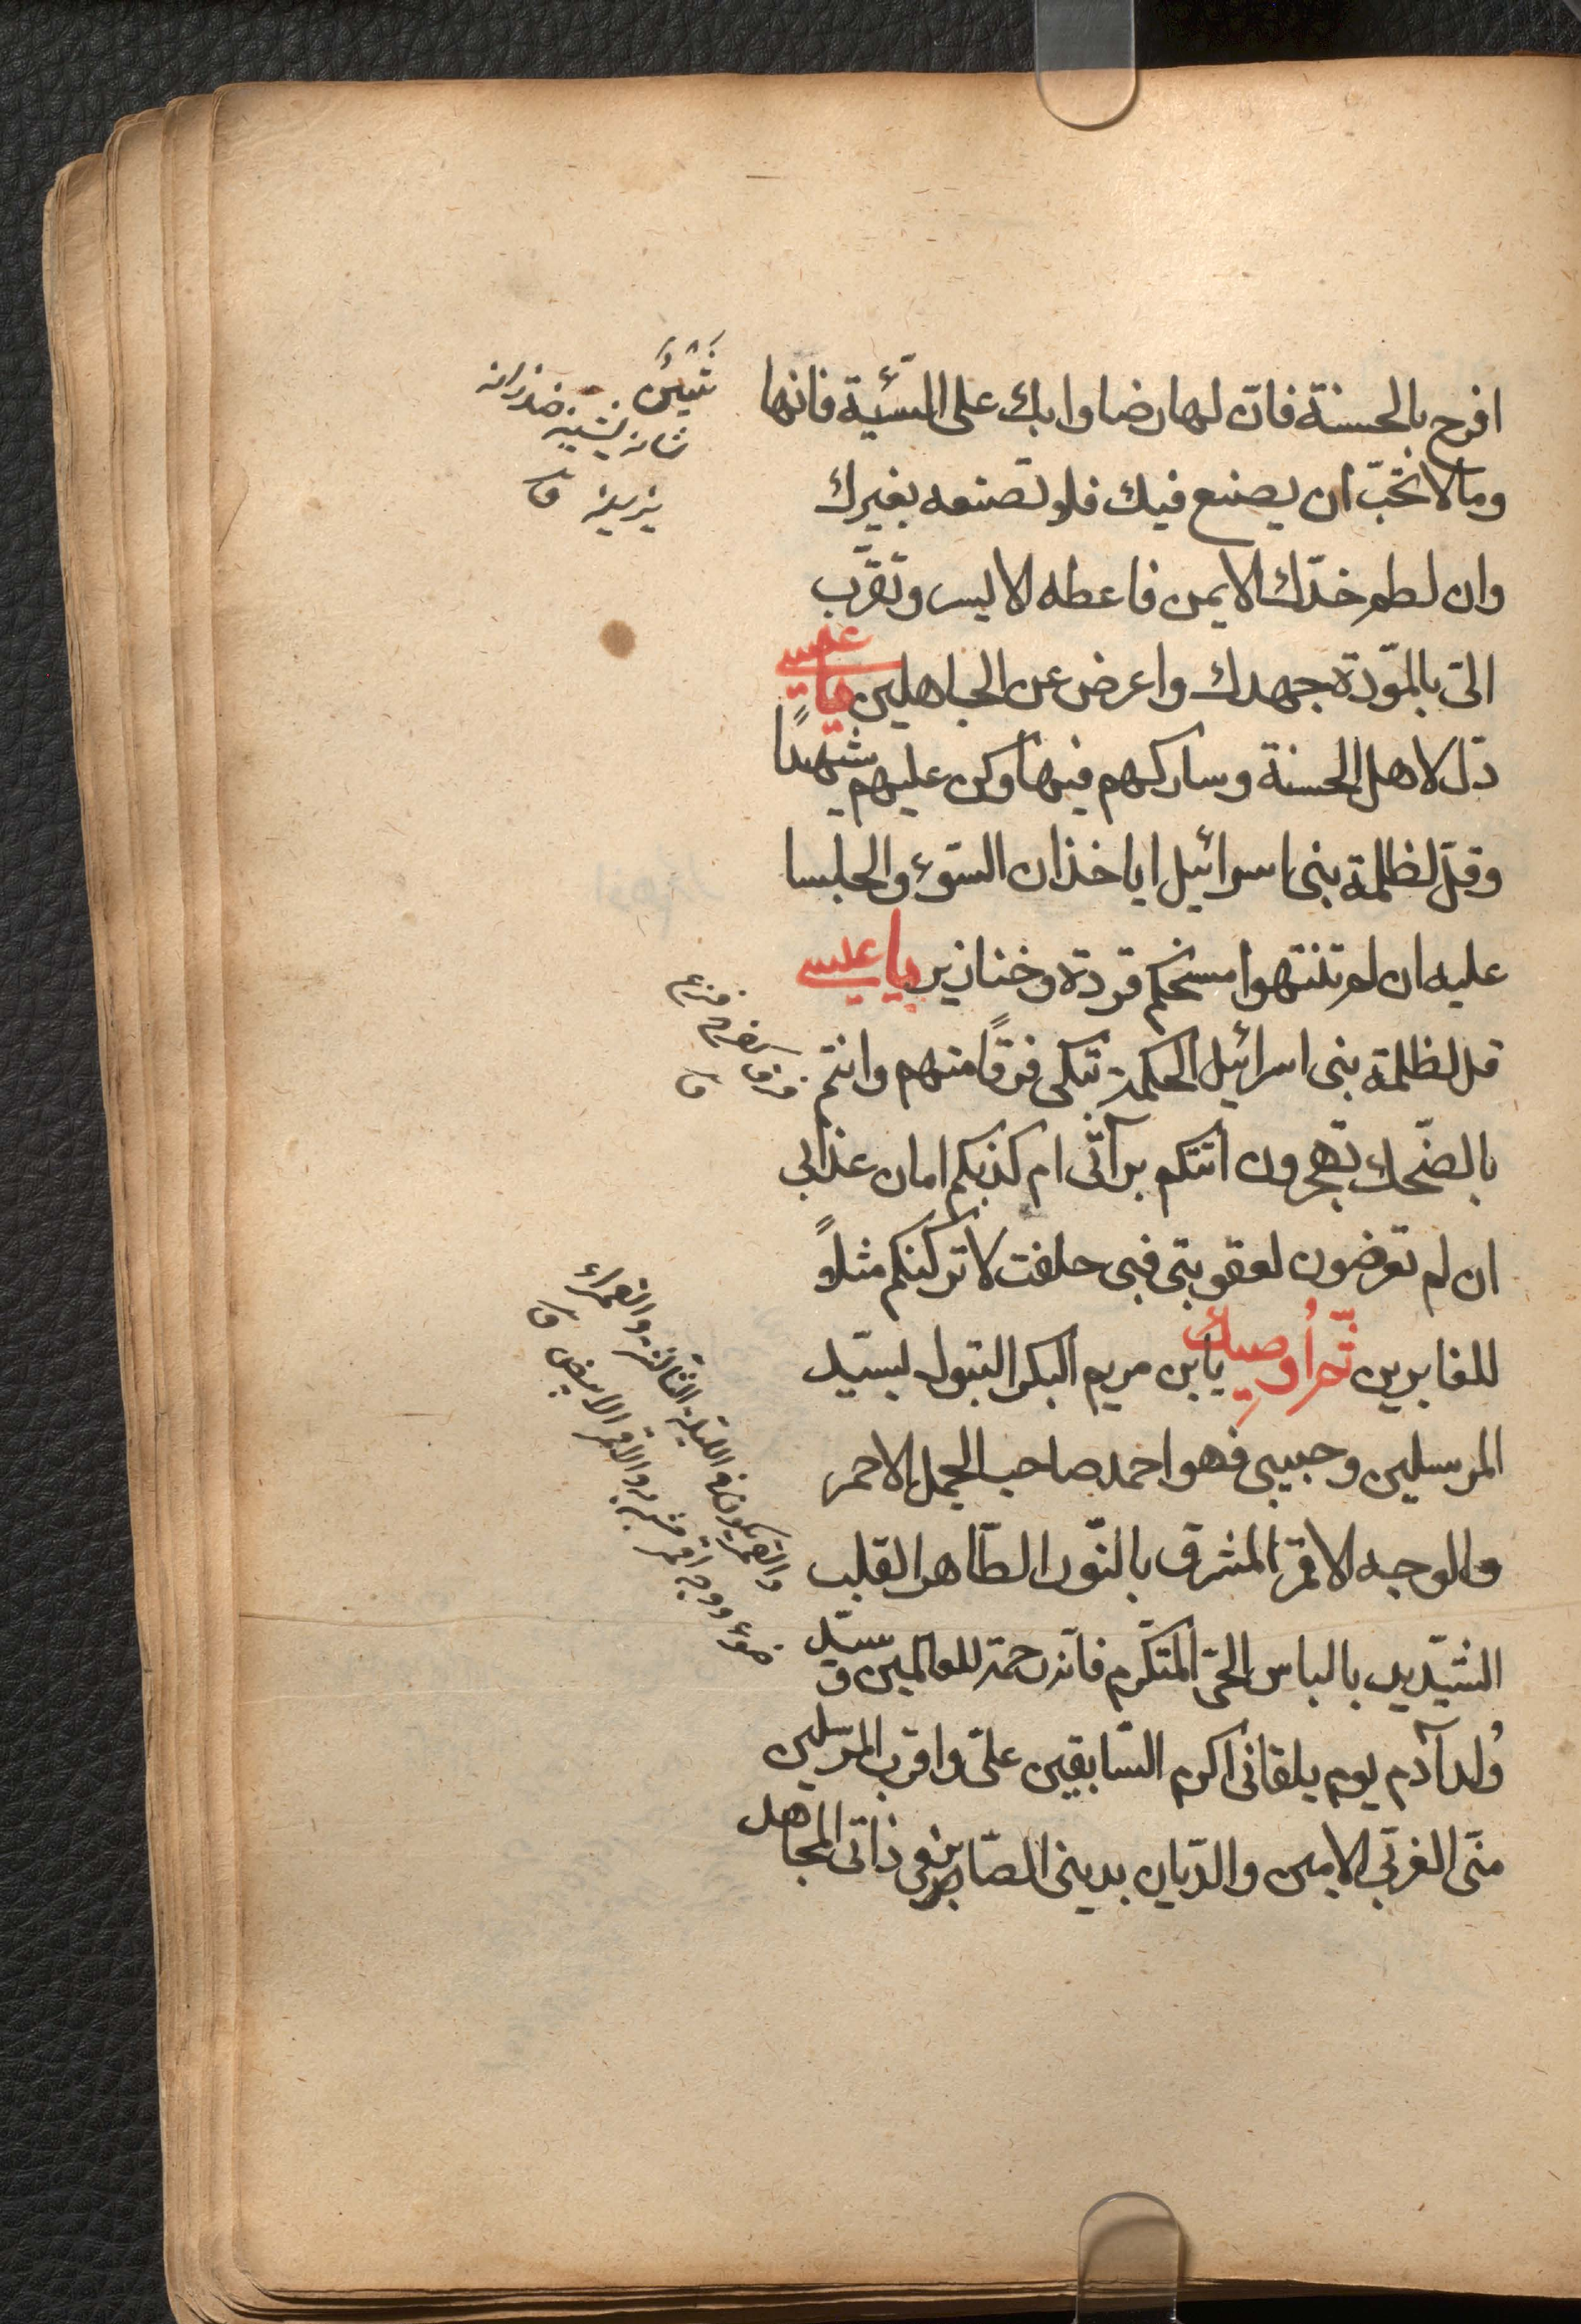 افرح بالحسنة فانّ لها رضا وابك على السّئية فانها
وما لا تحبّ ان يصنع فيك فلا تصنعه بغيرك
وان لطم خدّك الايمن فاعطه الايسر وتقرّب
الىّ بالموّدة جهدك واعرض عن الجاهلين يا عيسى
ذلّ لاهل الحسنة وساركهم فيها وكن عليهم شهيدًا
وقل لظلمة بنى اسرائيل ايا خذان السّوء والجلسا
عليه ان لم تنتهوا مسخكم قردة وخنازير يا عيسى
قل لظلمة بنى اسرائيل الحكمة تبكى فرقًا منهم وانتم
بالضّحك تهجرون اتتكم برآئى ام كذبكم امان عذابى
ان لم تعرضون لعقوبتى فبى حلفت لاتركنكم مثلاً
للغابرين ثمّ اُوصيك يابن مريم البكر البتول بسيّد
المرسلين وحبيبى فهو احمد صاحب الجمل الاحمر
والوجه الاقمر المشرق بالنّور الطّاهر القلب
الشّديد بالباس الحىّ المتكرّم فانّه رحمة للعالمين و سيّد
وُلد آدم يوم يلقانى اكرم السّابقين علىّ واقرب المرسلين
منّى العربّى الامين والدّيان بدينى الصّابر فى ذاتى المجاهد